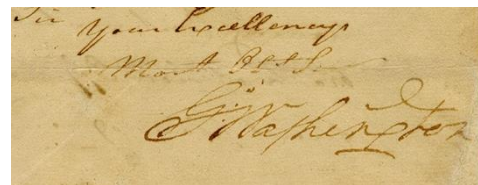 Sir
your Excellency's
Most Obt S
Go Washington